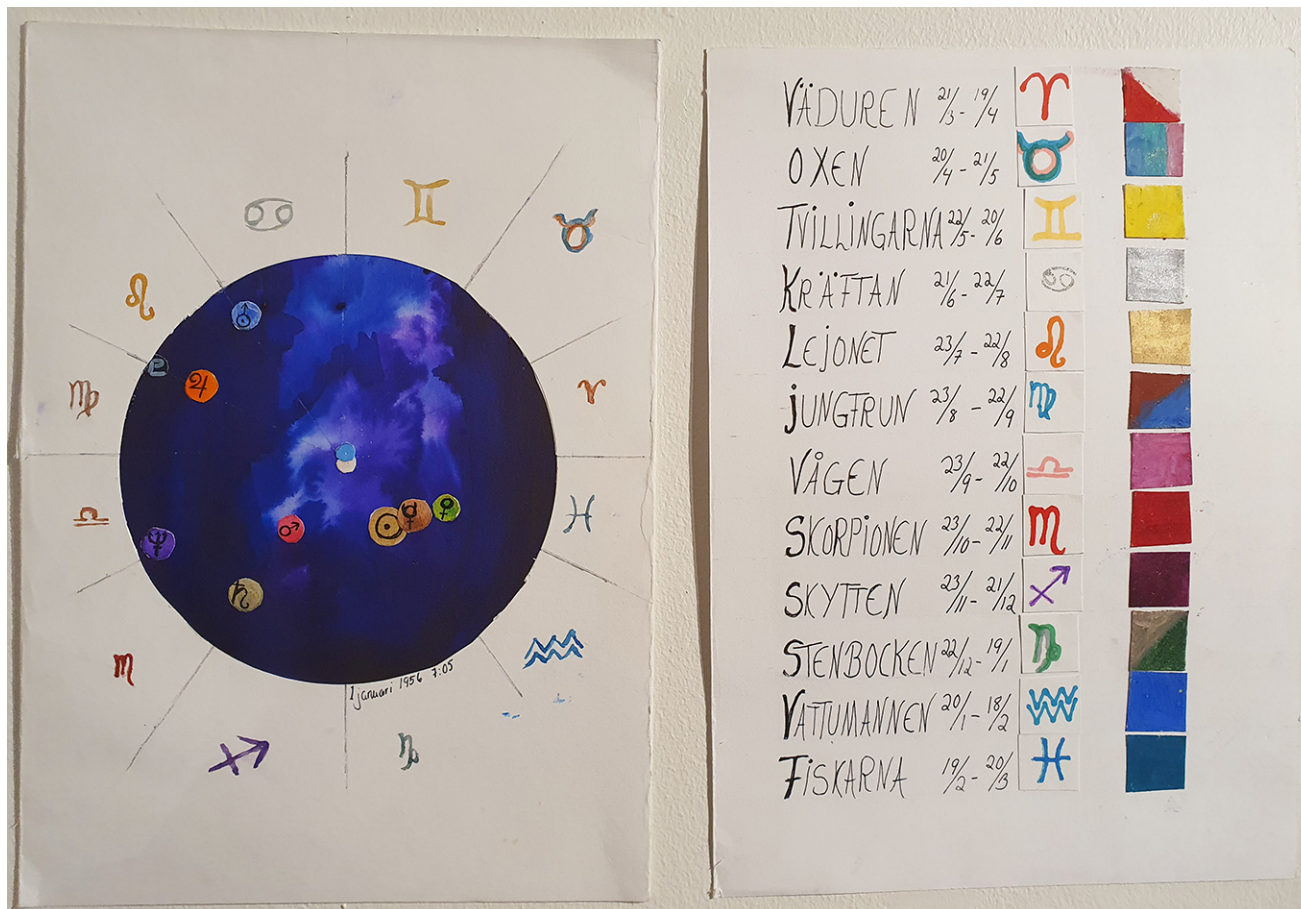 1 januari 1956 7:05
VÄDUREN 21/3 - 19/4
OXEN 20/4 - 21/5
TVILLINGARNA 22/5 - 20/6
KRÄFTAN 21/6 - 22/7
LEJONET 23/7 - 22/8
JUNGFRUN 23/8 - 22/9
VÅGEN 23/9 - 22/10
SKORPIONEN 23/10 - 22/11
SKYTTEN 23/11 - 21/12
STENBOCKEN 22/12 - 19/1
VATTUMANNEN 20/1 - 18/2
FISKARNA 19/2 - 20/3